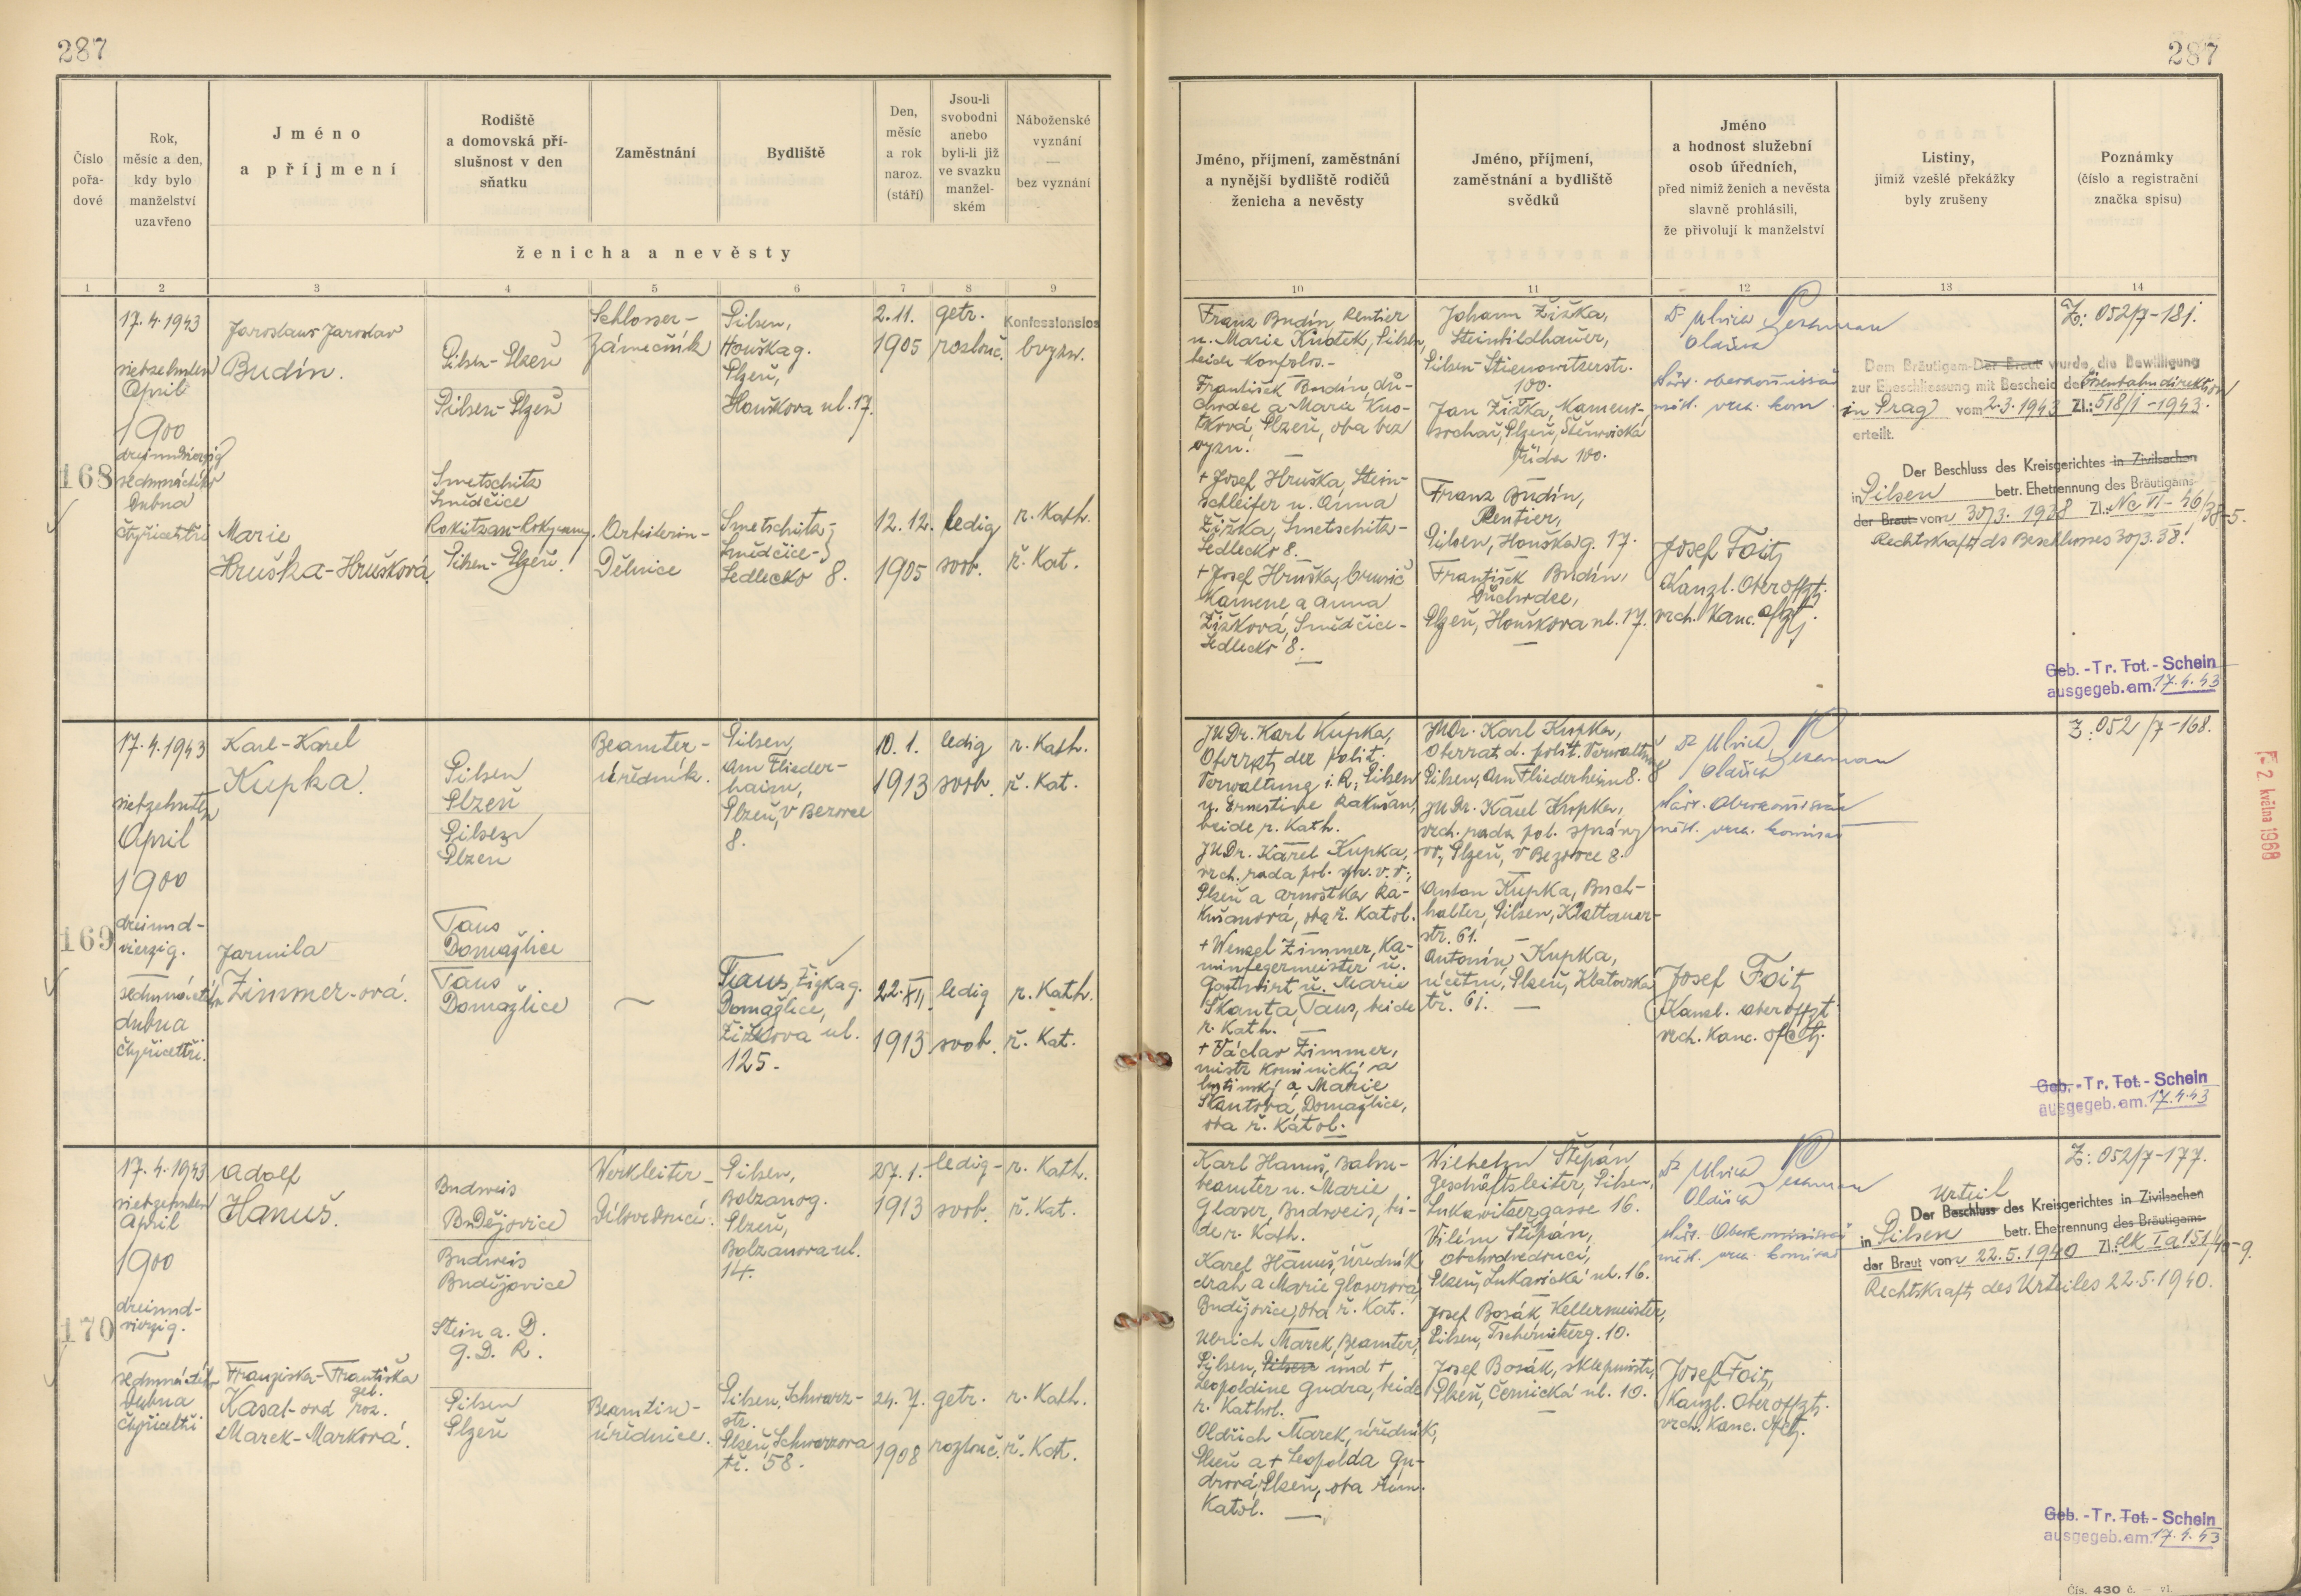 287
287
Číslo
pořa-
dové
Rok,
měsíc a den,
kdy bylo
manželství
uzavřeno
Jméno
a příjmení
Rodiště
a domovská pří-
slušnost v den
sňatku
Zaměstnání
Bydliště
Den,
měsíc
a rok
naroz.
(stáří)
Jsou-li
svobodni
anebo
byli-li již
ve svazku
manžel-
ském
Náboženské
vyznání
—
bez vyznání
ženicha a nevěsty
Jméno, příjmení, zaměstnání
a nynější bydliště rodičů
ženicha a nevěsty
Jméno, příjmení,
zaměstnání a bydliště
svědků
Jméno
a hodnost služební
osob úředních,
před nimiž ženich a nevěsta
slavně prohlásili,
že přivolují k manželství
Listiny,
jimiž vzešlé překážky
byly zrušeny
Poznámky
(číslo a registrační
značka spisu)
1 2 3 4 5 6 7 8 9
10 11 12 13 14
168
17.4.1943
siebzehnten
April
1900
dreiundvierzig
sedmnáctého
Dubna
čtyřicettři
Jaroslaus Jaroslav
Budín.
Pilsen-Plzeň
Pilsen-Plzeň
Schlosser-
Zámečník
Pilsen,
Houškag.
Plzeň,
Houškova ul. 17.
2.11.
1905
getr.
rozlouč.
Konfessionslos
bvyzn.
Marie
Hruška-Hrušková
Smetschitz
Smědčice
Rokitzan-Rokycany.
Pilsen-Plzeň.
Arbeiterin-
Dělnice
Smetschitz-
Smědčice-
Sedlecko 8.
12.12.
1905
ledig
svob.
r. Kath.
ř. Kat.
Franz Budín, Rentier
u. Marie Kudtek, Pilsen,
beide Konfslos.-
František Budín, dů-
chodce a Marie
Plzeň, oba bez
vyzn. —
+ Josef Hruška, Stein-
schleifer u. Anna
Žižka, Smetschitz-
Sedlecko 8.
+ Josef Hruška, brusič
Kamene a Anna
Žižková, Smědčice-
Sedlecko 8. —
Johann Žižka,
Steinbildhauer,
Pilsen-Stienowitzerstr.
100.
Jan Žižka, Kameno-
sochař, Plzeň, Štěnovická
třída 100.
Franz Budín,
Rentier,
Pilsen, Houškag. 17.
František Budín,
Důchodce,
Plzeň, Houškova ul. 17.
Dr Ulrich Pessman
Oldřich
Josef Foitz
Kanzl. Oberoffzt.
vrch. Kanc. ofzt.
Dem Bräutigam-Der Braut wurde die Bewilligung
zur Eheschliessung mit Bescheid der Eisenbahndirektion
in Prag vom 2.3.1943 Zl.: 518/1-1943.
erteilt.
Der Beschluss des Kreisgerichtes in Zivilsachen
in Pilsen betr. Ehetrennung des Bräutigams-
der Braut von 30/3. 1938 Zl.: Nc VI-46/38-5.
Rechtskraft ds Beschlusses 30/3.38!
Z: 052/7-181.
Geb.-Tr. Tot.-Schein
ausgegeb.am. 17.4.43
169
17.4.1943
siebzehnten
April
1900
dreiund-
vierzig.
sedmnáctého
dubna
čtyřicettři.
Karl-Karel
Kupka.
Pilsen
Plzeň
Pilsen
Plzeň
Beamter-
úředník.
Pilsen,
Am Flieder-
haim,
Plzeň, v Bezovce
8.
10.1.
1913
ledig
svob.
r. Kath.
ř. Kat.
Jarmila
Zimmer-ová.
Taus
Domažlice
Taus
Domažlice
Taus, Žižkag.
Domažlice,
Žižkova ul.
125.
22.XII.
1913
ledig
svob.
r. Kath.
ř. Kat.
JUDr. Karl Kupka,
Oberrat der polit.
Verwaltung i. R., Pilsen
u. Ernestine Rakušan,
beide r. Kath.
JUDr. Karel Kupka,
vrch. rada pol. spr. v. v.,
Plzeň a Arnoštka Ra-
kušanová, oba ř. Katol.
+ Wenzel Zimmer, Ka-
minfegermeister u.
Gastwirt u. Marie
Škanta, Taus, beide
r. Kath. —
+ Václav Zimmer,
mistr kominický a
hostinský a Marie
Škantová, Domažlice,
oba ř. Katol.
JUDr. Karl Kupka,
Oberrat d. polit. Verwaltung
Pilsen, Am Fliederheim 8.
JUDr. Karel Kupka,
vrch. rada pol. správy
vv., Plzeň, v Bezovce 8.
Anton Kupka, Buch-
halter, Pilsen, Klattauer-
str. 61. —
Antonín Kupka,
účetní, Plzeň, Klatovská
tř. 61. —
Dr Ulrich Pessman
Oldřich
Josef Foitz
Kanzl. Oberoffzt.
vrch. Kanc. ofctz.
Z: 052/7-168.
Geb.-Tr. Tot.-Schein
ausgegeb.am. 17.4.43
2. května 1968
170
17.4.1943
siebzehnten
April
1900
dreiund-
vierzig.
sedmnáctého
Dubna
čtyřicettři
Adolf
Hanuš.
Budweis
Budějovice
Budweis
Budějovice
Werkleiter-
Dílovedoucí.
Pilsen,
Bolzanog.
Plzeň,
Bolzanova ul.
14.
27.1.
1913
ledig-
svob.
r. Kath.
ř. Kat.
Franziska-Františka
Kasal-ová geb. roz.
Marek-Marková.
Stein a. D.
G. D. R.
Pilsen
Plzeň
Beamtin-
úřednice.
Pilsen, Schwarz-
str.
Plzeň, Schwarzova
tř. 58.
24.7.
1908
getr.
rozlouč.
r. Kath.
ř. Kat.
Karl Hanuš, Bahn-
beamter u. Marie
Glaser, Budweis, bei-
de r. Kath.
Karel Hanuš, úředník
drah a Marie Glaserová,
Budějovice, oba ř. Kat.
Ulrich Marek, Beamter,
Pilsen, Pilsen und +
Leopoldine Gudra, beide
r. Kathol.
Oldřich Marek, úředník,
Plzeň a + Leopolda Gu-
drová, Plzeň, oba řím.
Katol. —
Wilhelm Štěpán,
Geschäftsleiter, Pilsen,
Lukawitzergasse 16.
Vilém Štěpán,
obchodvedoucí,
Plzeň, Lukavická ul. 16.
Josef Bosák, Kellermeister,
Pilsen, Tschernikerg. 10.
Josef Bosák, sklepmistr,
Plzeň, Černická ul. 10. —
Dr Ulrich Pessman
Oldřich
Josef Foitz,
Kanzl. Oberoffzt.
vrch. Kanc. ofctz.
Urteil
Der Beschluss des Kreisgerichtes in Zivilsachen
in Pilsen betr. Ehetrennung des Bräutigams-
der Braut von 22.5.1940 Zl.: Ck I a 151/40-9.
Rechtskraft des Urteiles 22.5.1940.
Z: 052/7-177.
Geb.-Tr. Tot.-Schein
ausgegeb.am. 17.4.43
Čís. 430 č. — vl.